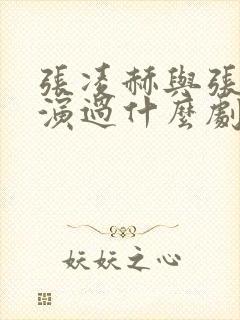 張凌赫與張
演過什麼劇
妖妖之心